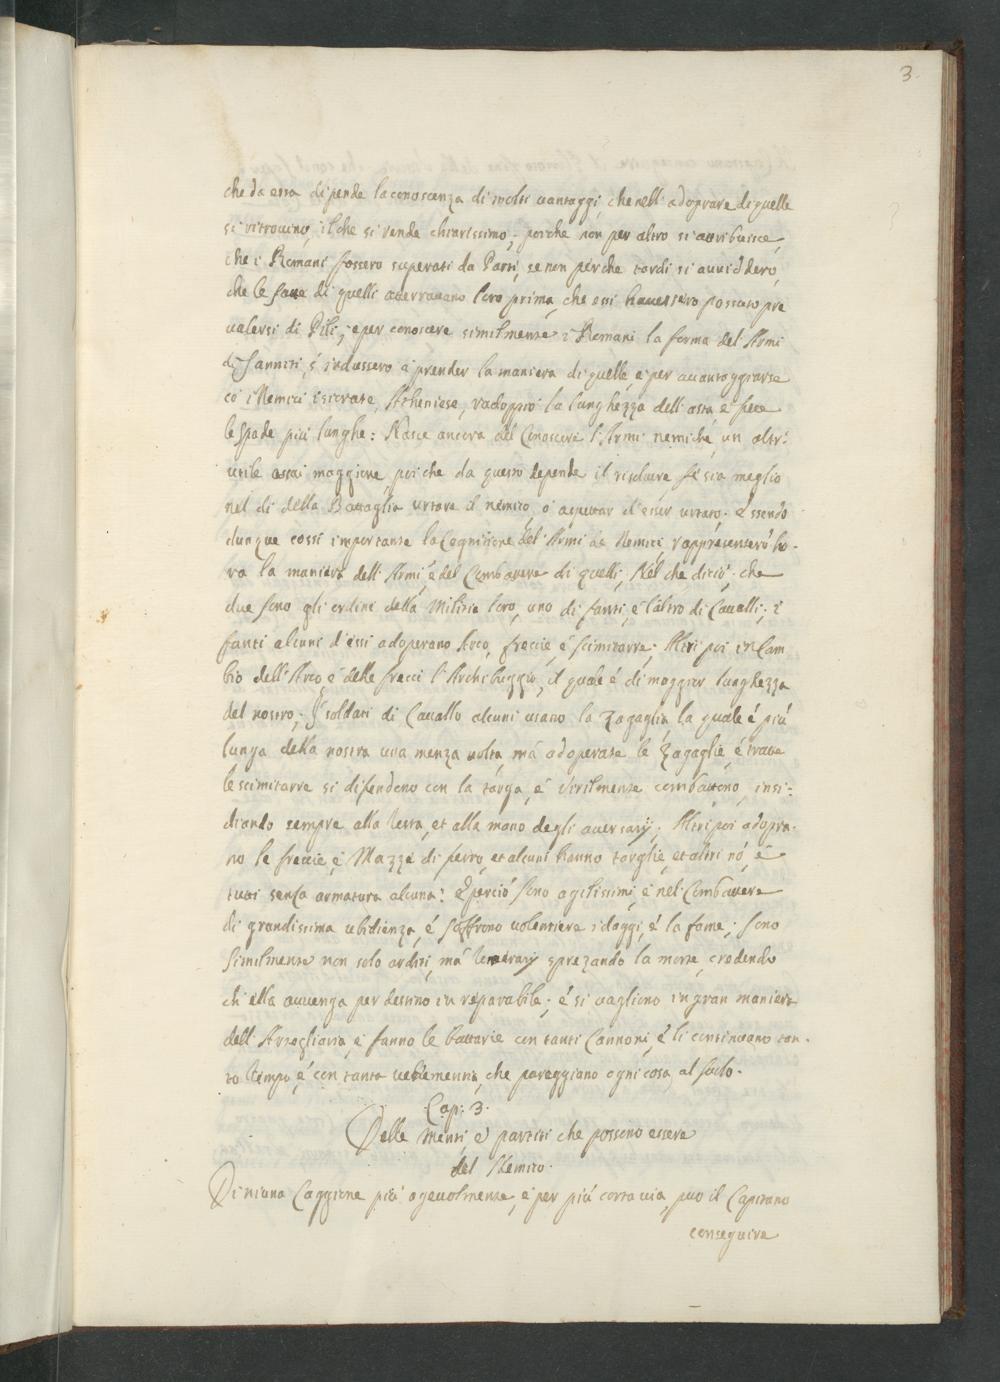 3.
che da essa dipende la conoscenza di molti vantaggi, che nell' adoprare di quelle
si ritrovino, il che si rende chiarissimo; poiche non per altro si attribuisce,
che i Romani fossero superati da Parti, se non perche tardi si avviddero,
che le saette di quelli atterravano loro prima, che essi havessero possuto pre
valersi di Pili; e per conoscere similmente i Romani la forma del Armi
di Sanniti, s' indussero à prender la maniera di quelle, e per avantaggiarse
có i Nemici Isicrate, Atheniese, radoppiò la lunghezza dell' asta e fece
le spade più lunghe: Nasce ancora dal Conoscere l' Armi nemiche, un altr'
utile assai maggiore, poi che da questo depende il risolvere, se sia meglio
nel dì della Battaglia urtare il nemico, ó aspettar d' esser urtato. Essendo
dunque cossì importante la Cognitione dell' Armi de Nemici, rappresenterò ho-
ra la maniera dell' Armi, e del Combattere di quelli, Nel che dicio, che
due sono gli ordini della Militia loro, uno di fanti, e l'altro di Cavalli; i
fanti alcuni d'essi adoperano Arco, freccie, e scimitarra; Altri poi in Cam
bio dell' Arco, e delle frecci l' Archibuggio, il quale é di maggior lunghezza
del nostro; I soldati di Cavallo alcuni usano la Zagaglia, la quale é più
lunga della nostra una menza volta, má adoperate le Zagaglie, é tratte
le scimitarre si difendono con la targa, é virilmente combattono, insi-
diando sempre alla testa, et alla mano degli aversarij; Altri poi adopra-
no le freccie, e Mazze di ferro, et alcuni hanno targhe, et altri nó, é
tutti senza armatura alcuna: E perciò sono agilissimi, e nel Combattere
di grandissima ubidienza, é soffrono volentiere i daggi, é la fame; sono
similmente non solo arditi, má temerarij sprezando la morte, credendo
ch' ella avvenga per destino inreparabile; é si vagliono in gran maniera
dell' Artegliaria, e fanno le battarie con tanti Cannoni, e li continuano tan-
to tempo, é con tanta vehementia, che pareggiano ogni cosa al suolo.
Cap: 3.
Delle Menti, e' partiti che possono essere
del Nemico.
Di niuna Caggione più agevolmente, e per più corta via, può il Capitano
conseguire